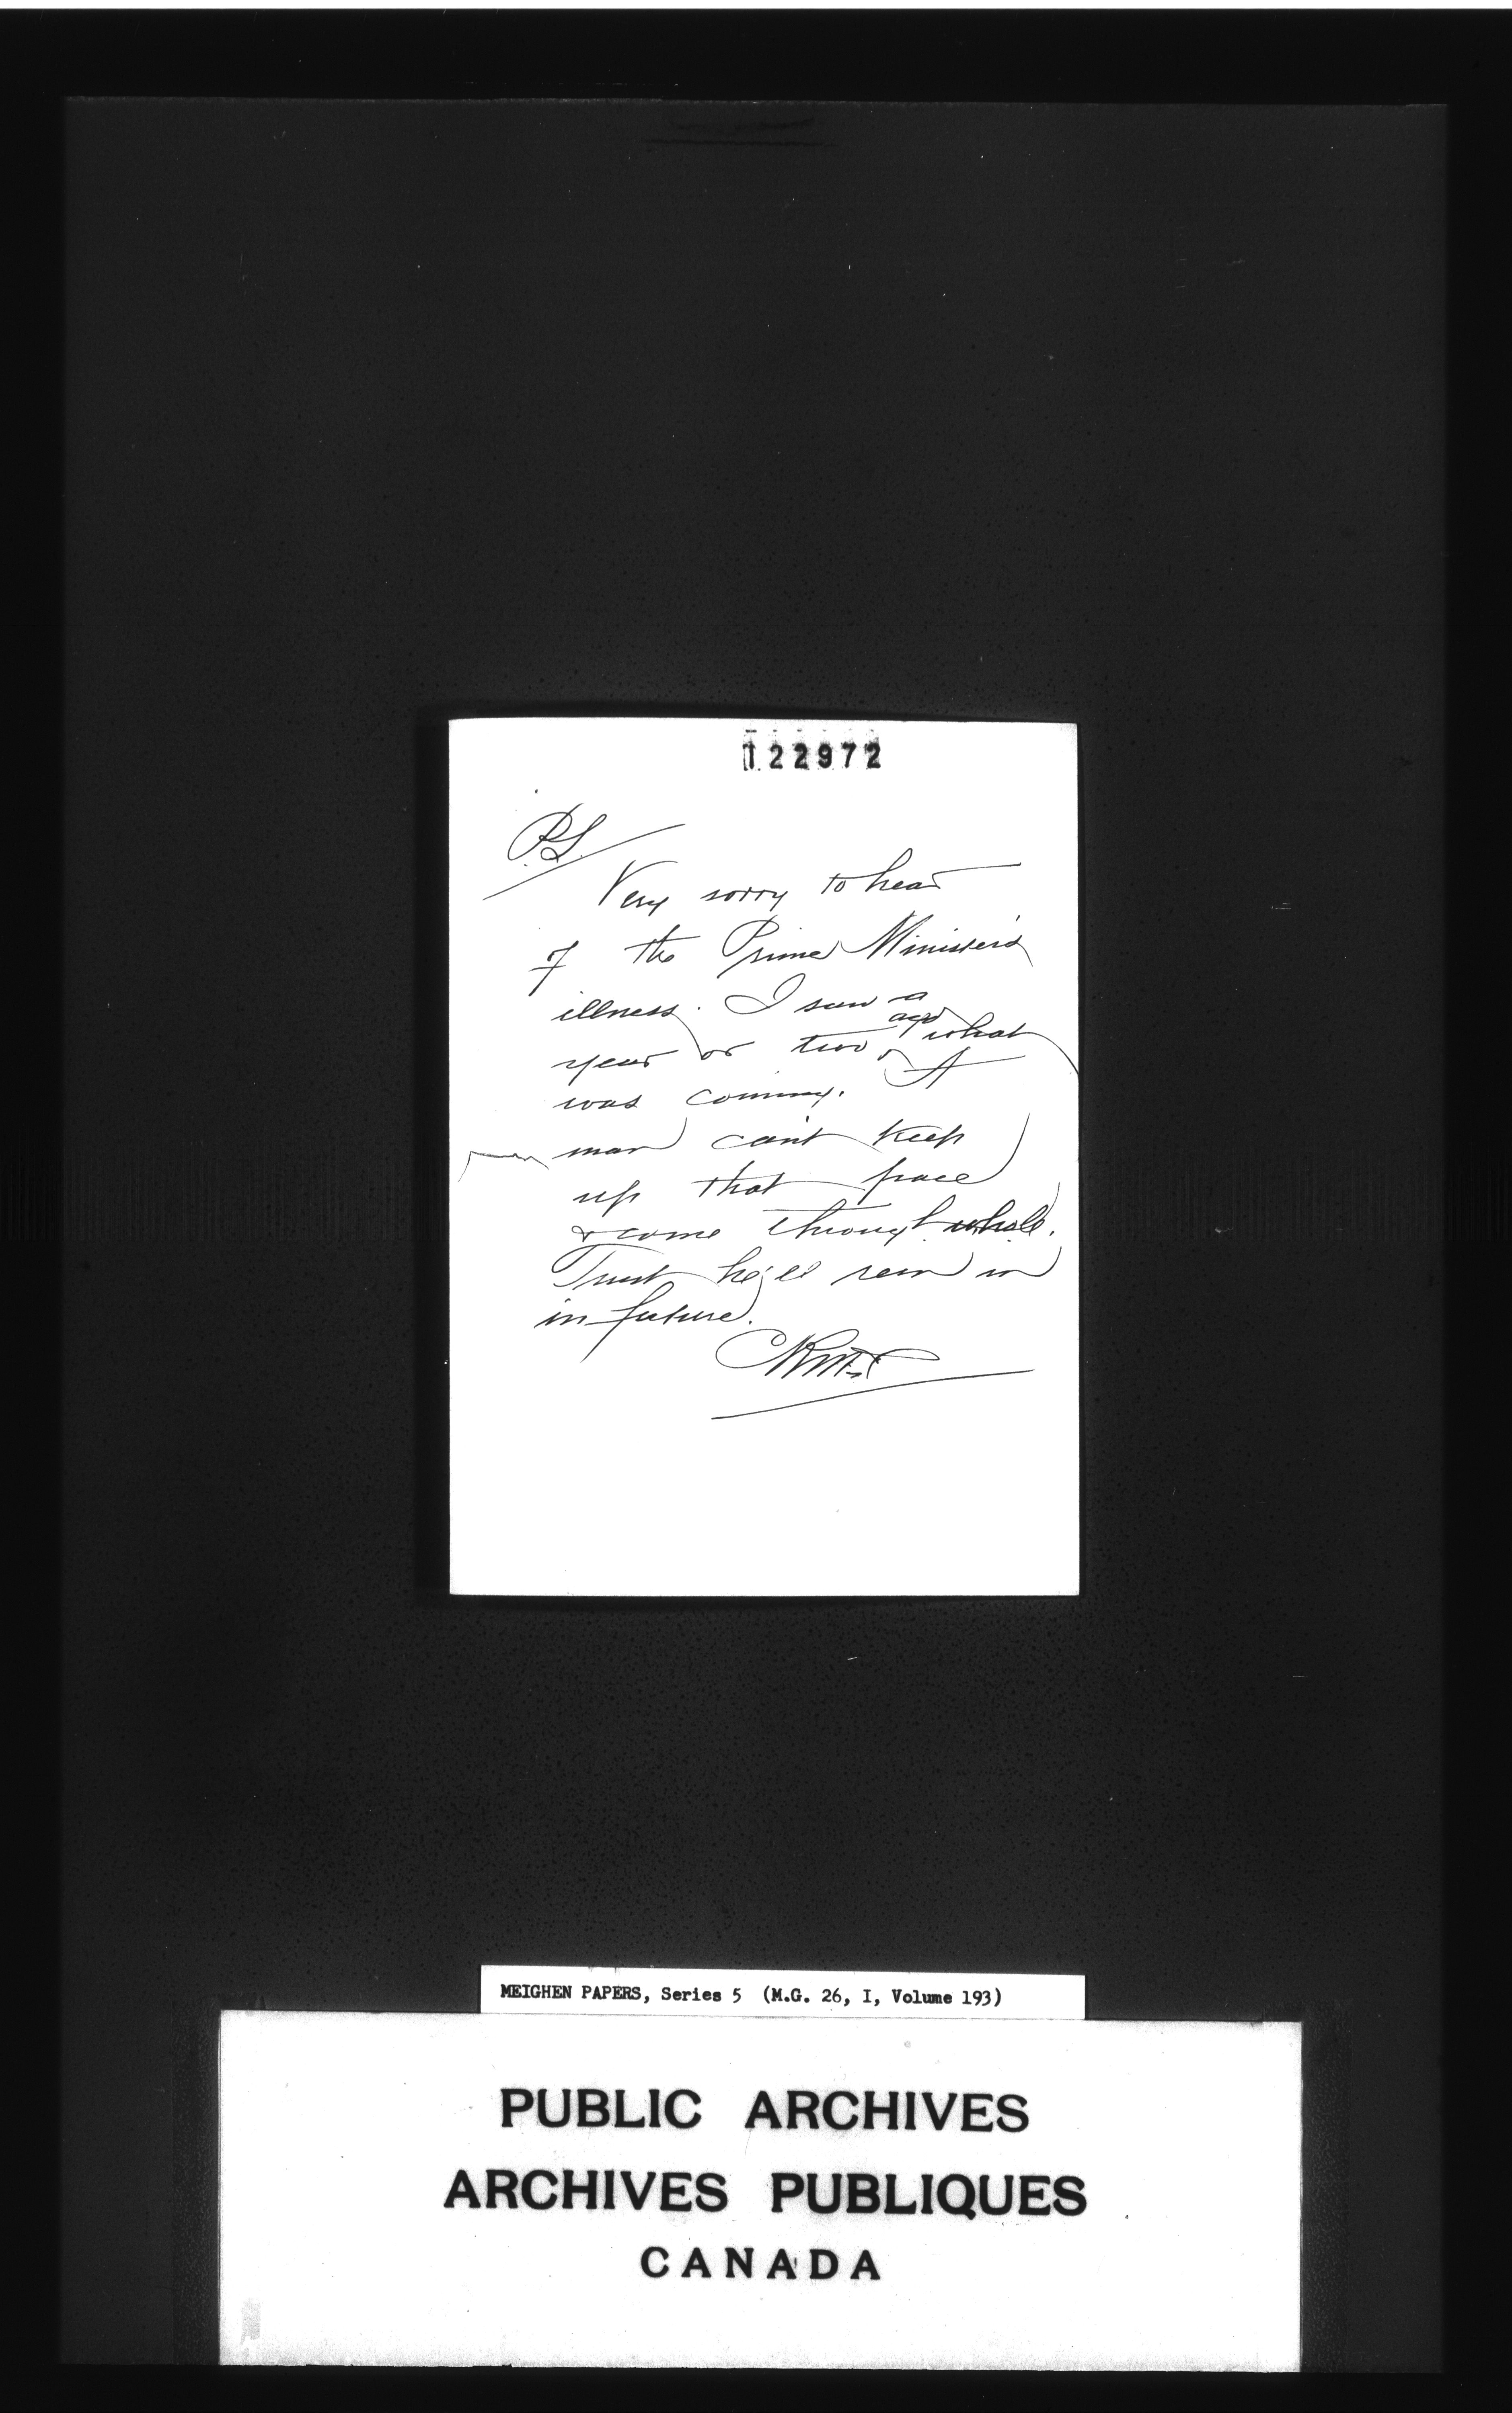 122972
P.S.
Very sorry to hear
of the Prime Minister's
illness. I saw a
year or two ago what
was coming. A
man can't keep
up that pace
& come through whole.
Trust he'll rein in
in future.
MEIGHEN PAPERS, Series 5 (M.G. 26, I, Volume 193)
PUBLIC ARCHIVES
ARCHIVES PUBLIQUES
CANADA